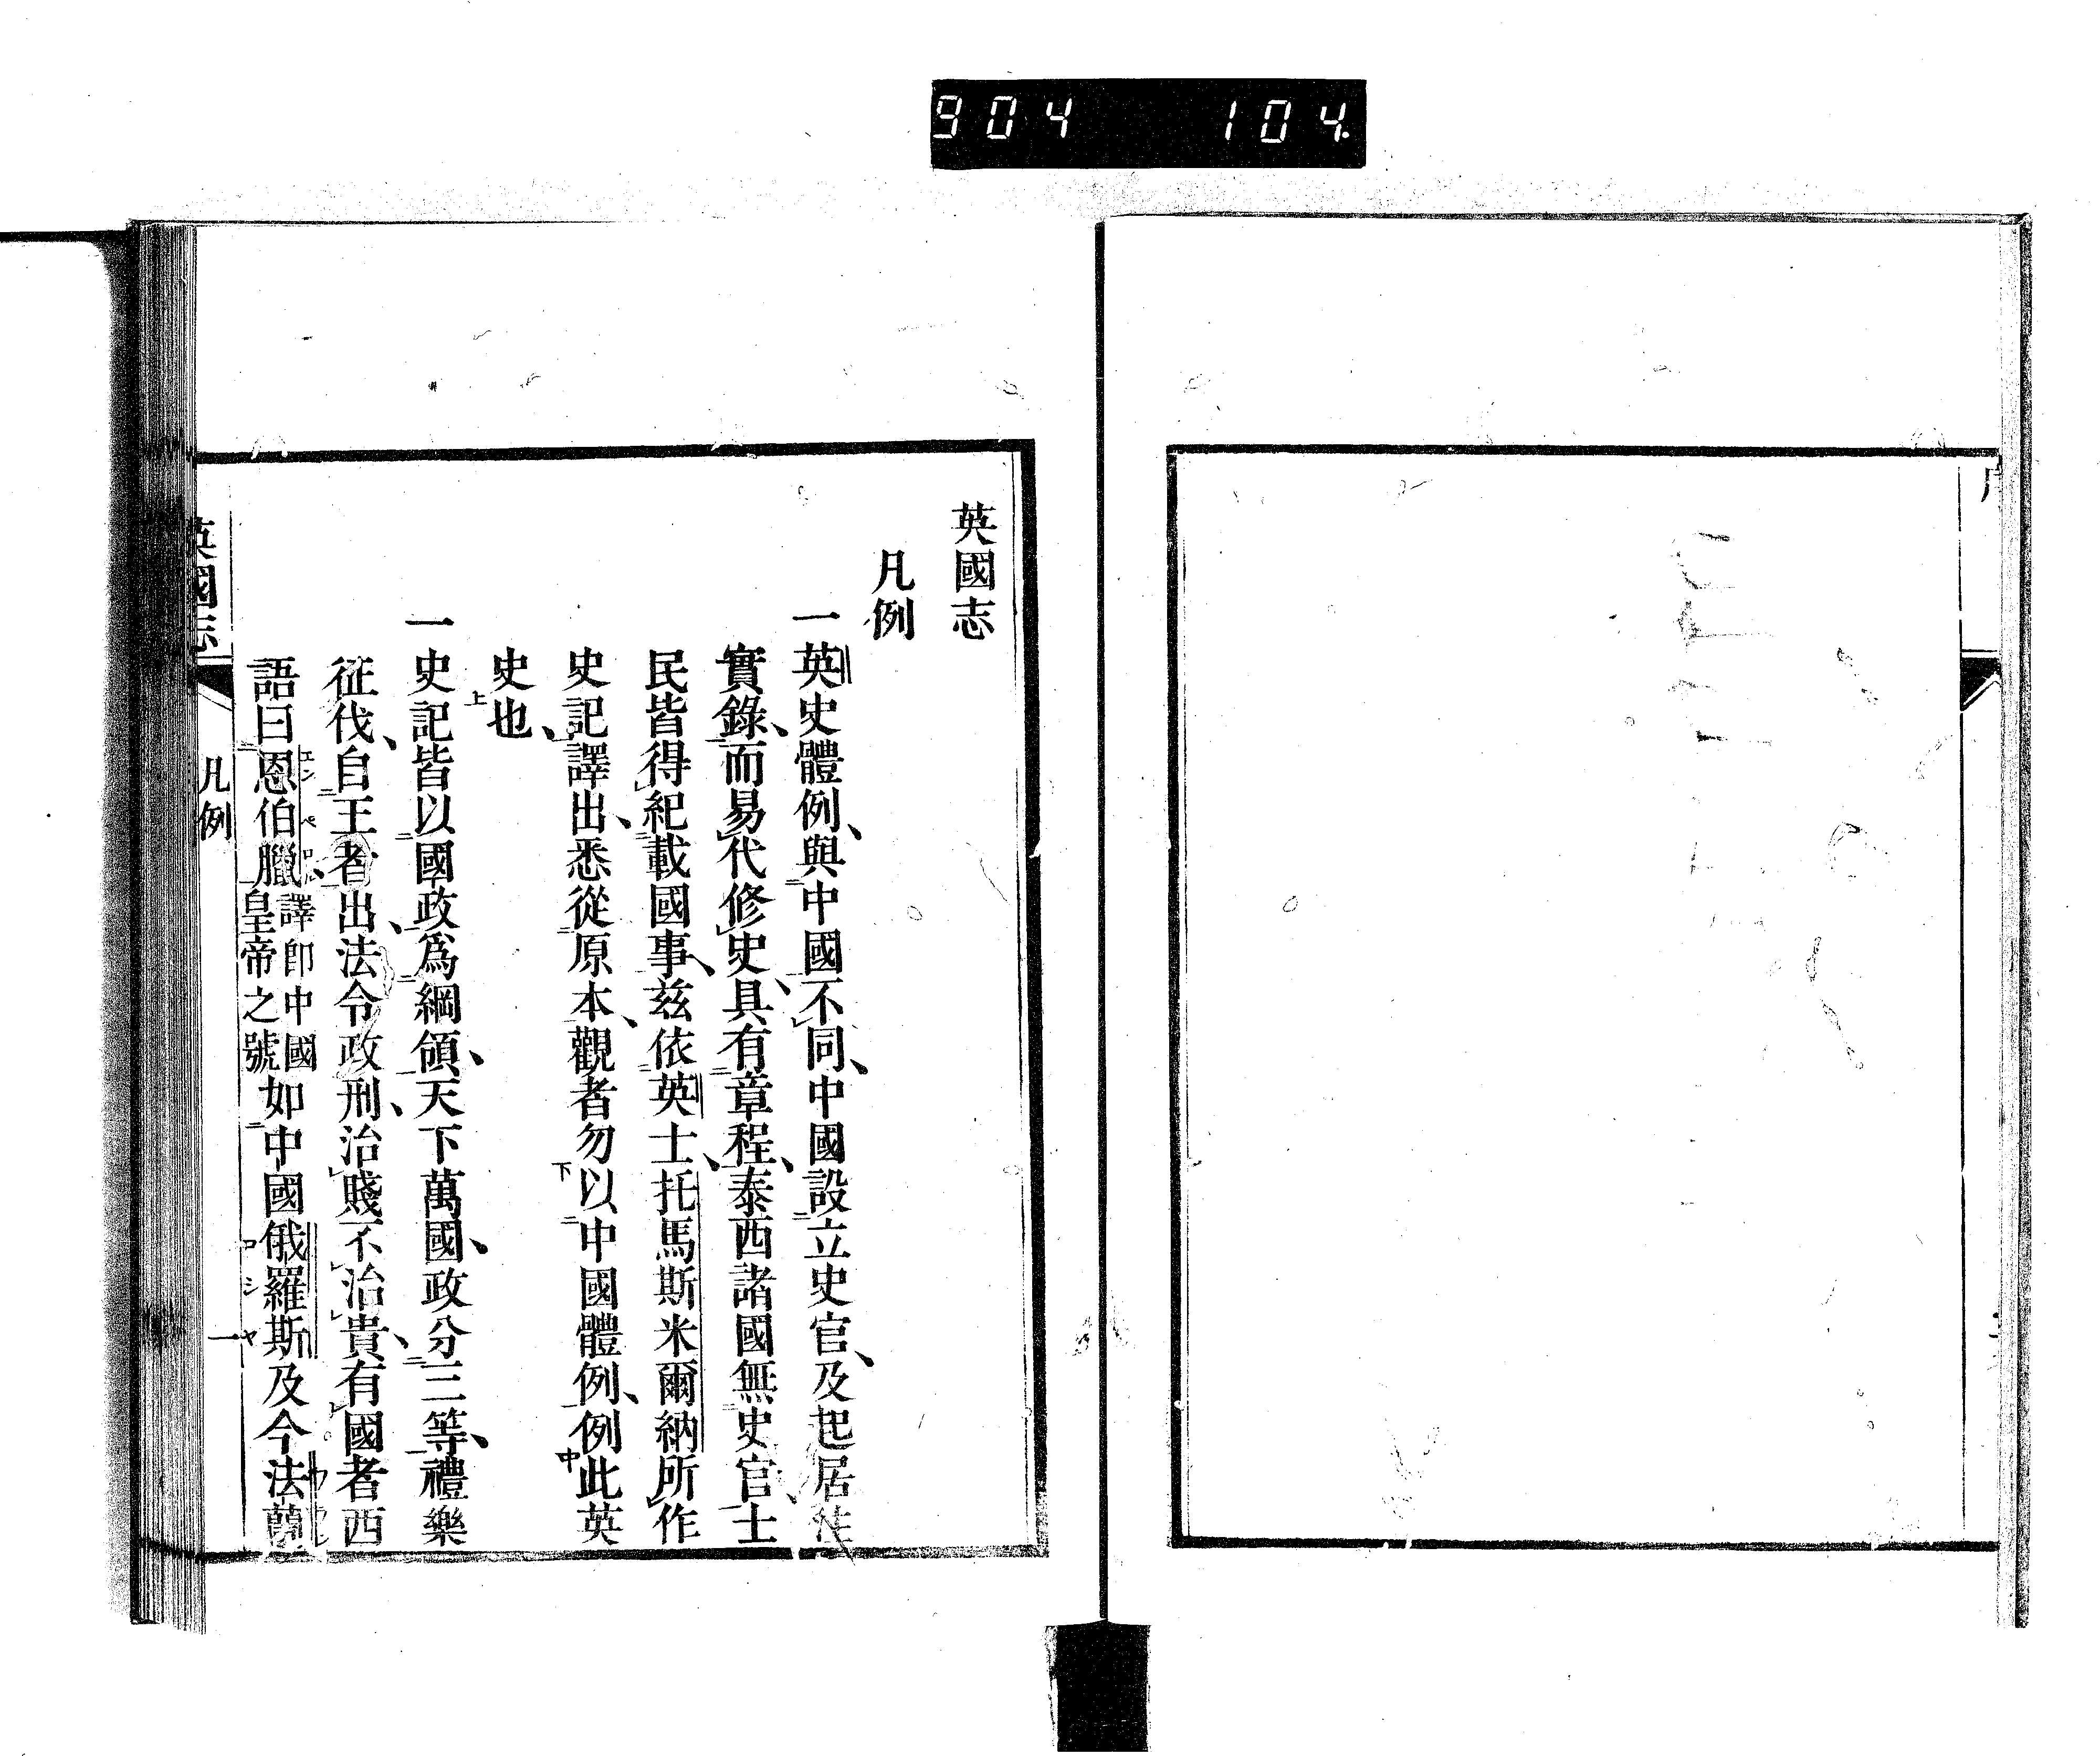 904 104.
英國志
凡例
一英史體例、與中國不同、中國設立史官、及起居注
實錄、而易代修史、具有章程、泰西諸國無史官、士
民皆得紀載國事、茲依英士、托馬斯米爾納所作
史記譯出、悉從原本、觀者勿以中國體例、例此英
史也、
一史記皆以國政爲綱領、天下萬國、政分三等、禮樂
征伐、自王者出、法令政刑、治賤不治貴、有國者西
語曰恩伯臘譯即中國皇帝之號如中國俄羅斯及今法蘭
英國志
凡例
一